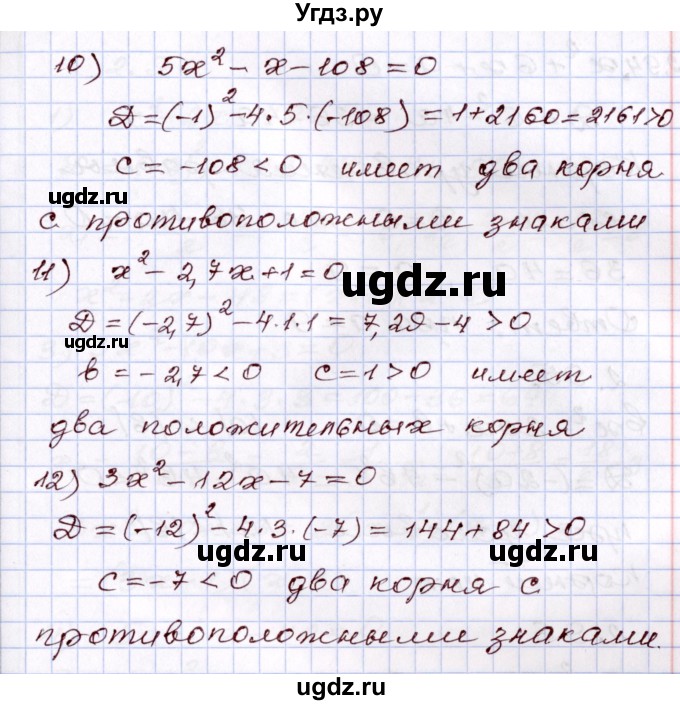 Угдз.ру
10) 5x² - x - 108 = 0
Д = (-1)² - 4·5·(-108) = 1 + 2160 = 2161 > 0
c = -108 < 0 имеет два корня
ugdz.ru
с противоположными знаками
11) x² - 2,7x + 1 = 0
ugdz.ru
Д = (-2,7)² - 4·1·1 = 7,29 - 4 > 0
ugdz.ru
b = -2,7 < 0 c = 1 > 0 имеет
два положительных корня
12) 3x² - 12x - 7 = 0
Д = (-12)² - 4·3·(-7) = 144 + 84 > 0
ugdz.ru
ugdz.ru
c = -7 < 0 два корня с
противоположными знаками.
ugdz.ru
ugdz.ru